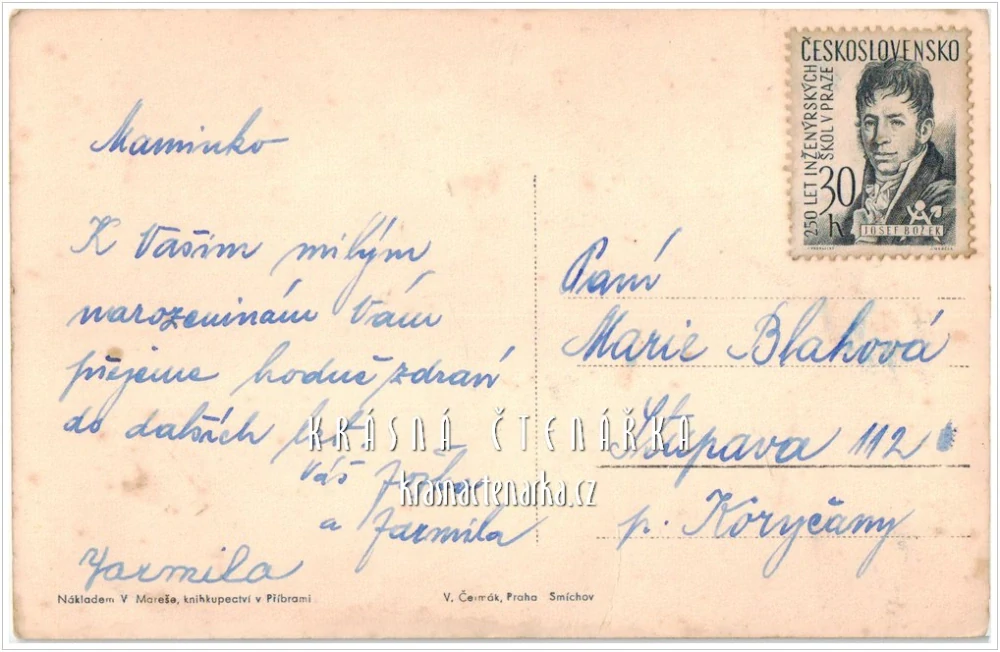 Maminko
K Vašim milým
narozeninám Vám
přejeme hodně zdraví
do dalších let.
Váš
a Jarmila
Jarmila
Nákladem V Mareše, knihkupectví v Příbrami
V. Čermák, Praha Smíchov
ČESKOSLOVENSKO
250 LET INŽENÝRSKÝCH
ŠKOL V PRAZE
30
h
JOSEF BOŽEK
Paní
Marie Blahová
Stupava 112
p. Koryčany
KRÁSNÁ ČTENÁŘKA
krasnactenarka.cz